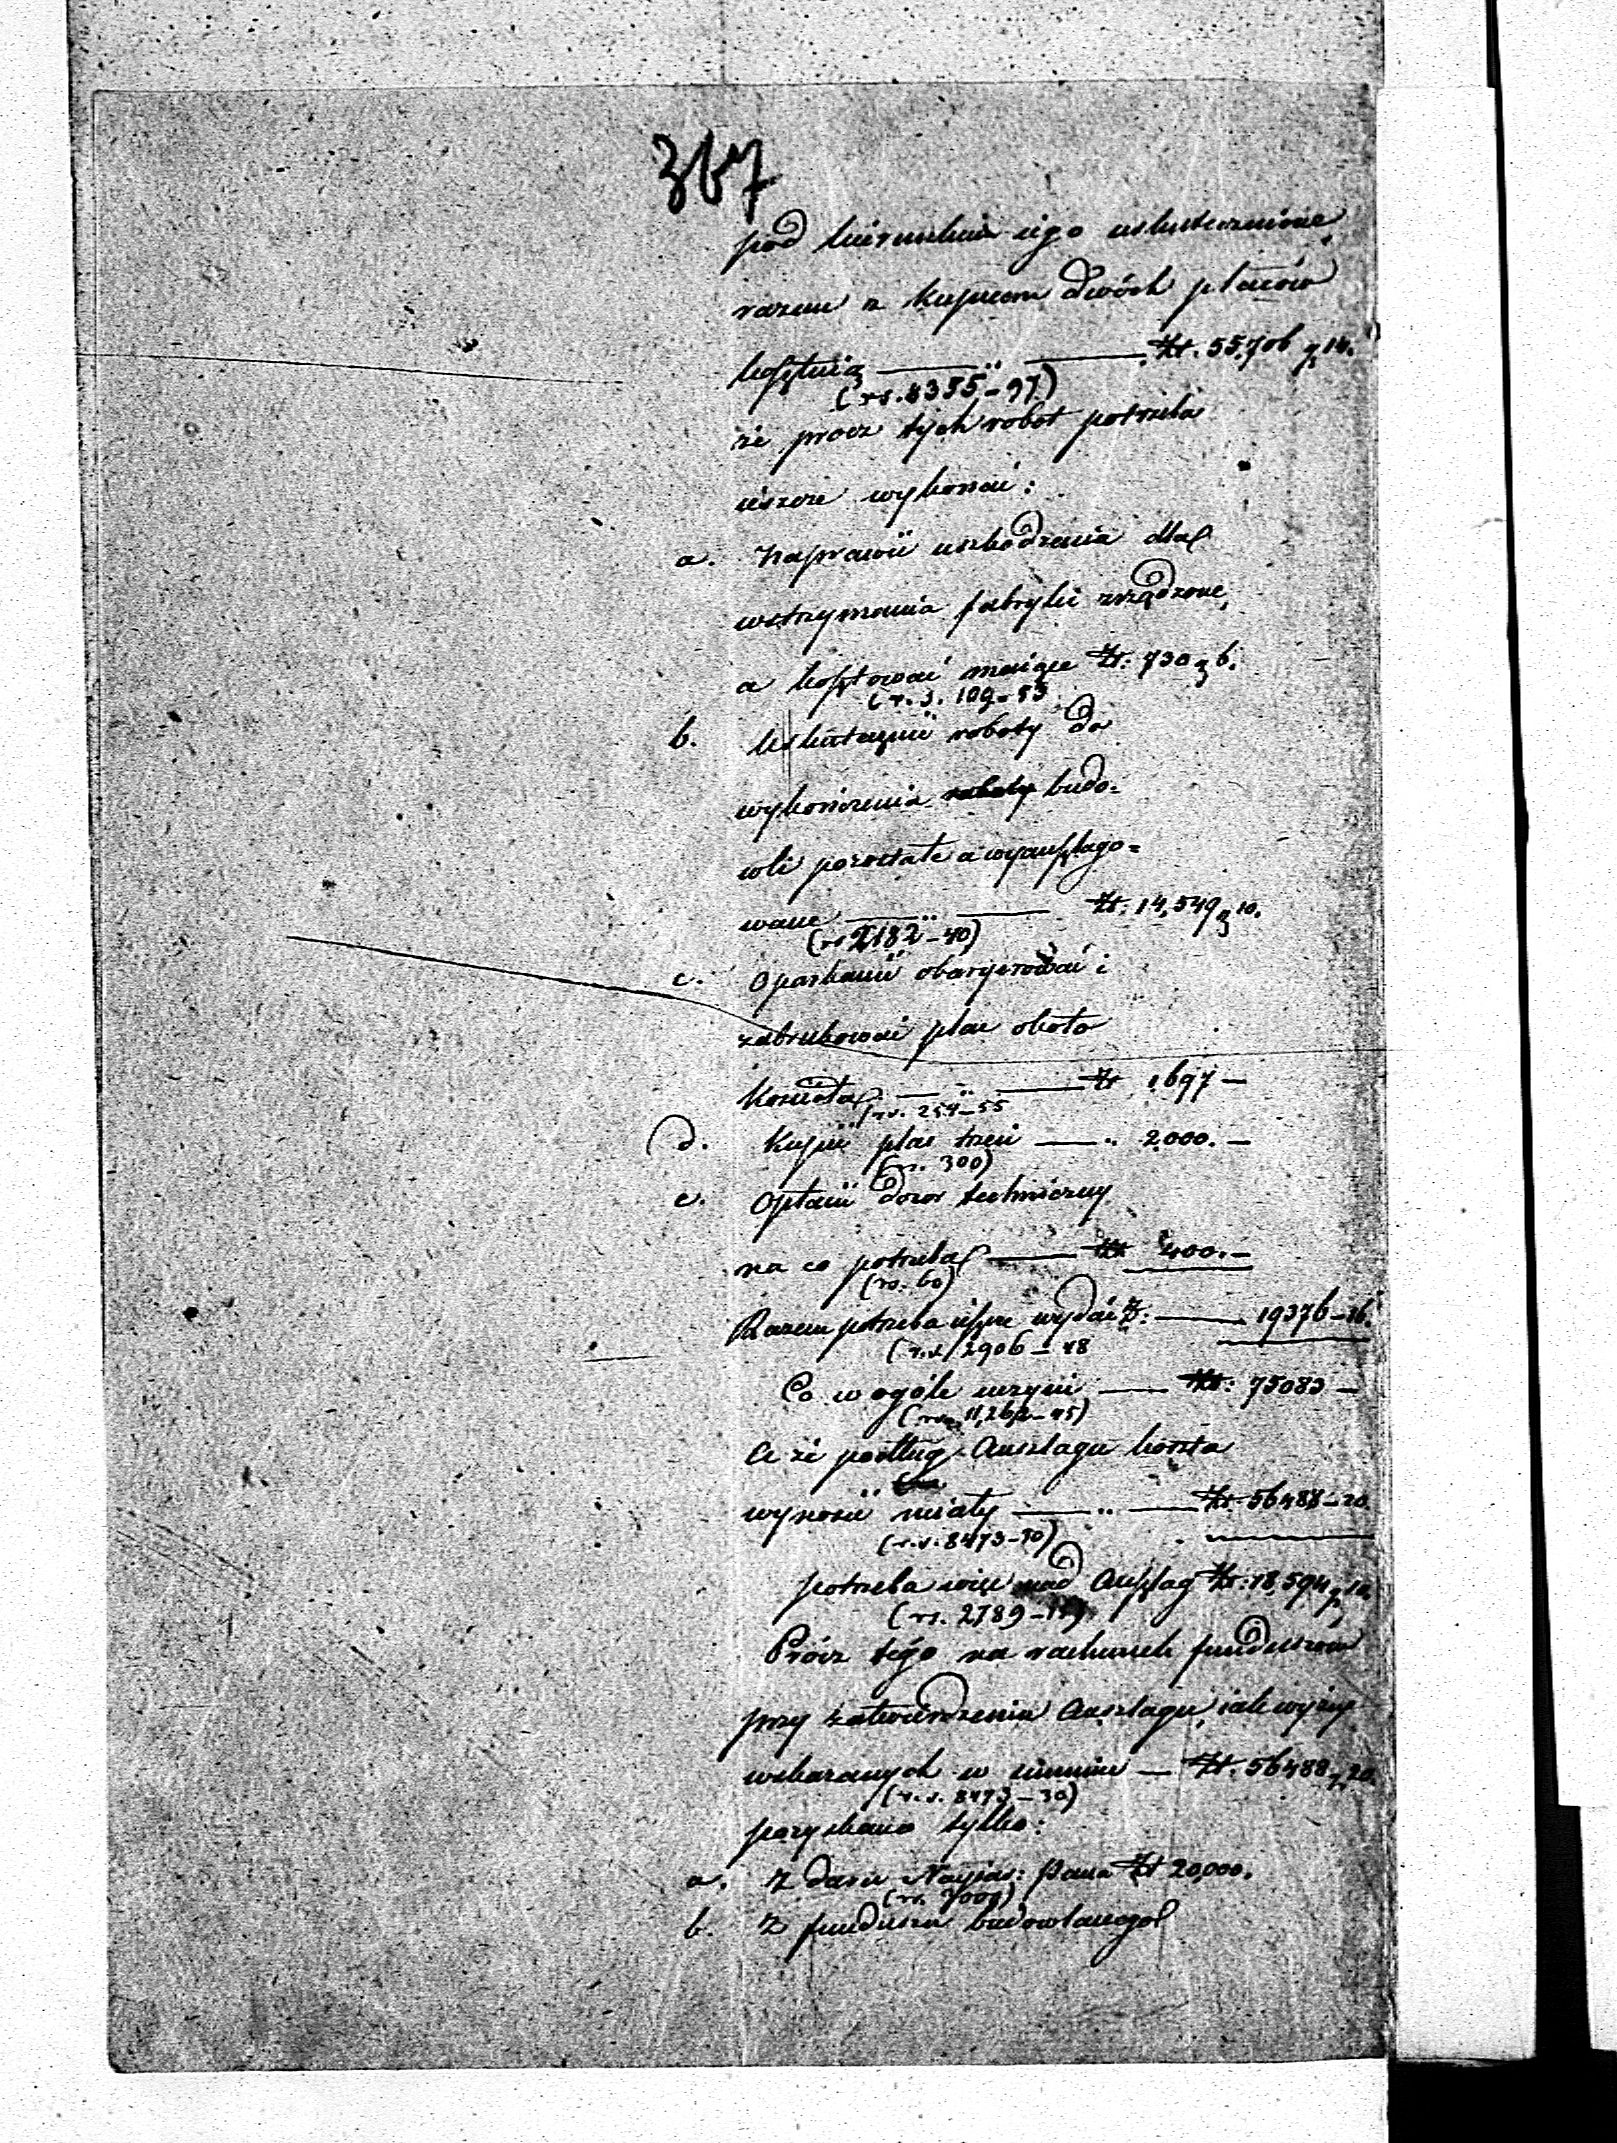 367
pod kierunkiem iego uskutecznione,
razem z kupnem dwóch placów
kosztuią ——— „ ——— Zł. 55,706 g 14.
(rs. 8355–97)
że prócz tych robot potrzeba
ieszcze wykonać:
a. Naprawić uszkodzenia dla
wstrzymania fabryki zrządzone,
a kosztować maiące Zł: 730 g 6.
(r. s. 109–53
b. Uskutecznić roboty do
wykończenia budo=
wli pozostałe a wyanszlago=
wane ——— „ ——— Zł: 14,549 g 10.
(rs 2182–40)
c. Oparkanić obaryerować i
zabrukować plac około
Kościoła — „ —— Zł 1697 —
(rs. 254–55
d. Kupić plac trzeci —— „ 2000. —
(rs. 300)
e. Opłacić dozor techniczny
na co potrzeba ——— Zł 400. —
(rs. 60)
Razem potrzeba ieszcze wydać Z: —— 19376–16.
(r.s. 2906–48
Co w ogóle uczyni —— Zł: 75083 —
(rs. 11,262–45)
A że podług Anszlagu koszta
wynosić miały —— „ —— Zł 56488–20
(r.s. 8473–30)
potrzeba więc nad Anszlag Zł: 18,594 g 10.
(rs. 2789–15)
Prócz tégo na rachunek funduszów
przy zatwierdzeniu Anszlagu, iak wyżey
wskazanych w summie — Zł. 56488 g 20.
(r. s. 8473–30)
pozyskano tylko:
a. Z daru Nayias: Pana Zł 20,000.
(rs. 3000)
b. Z funduszu budowlanego